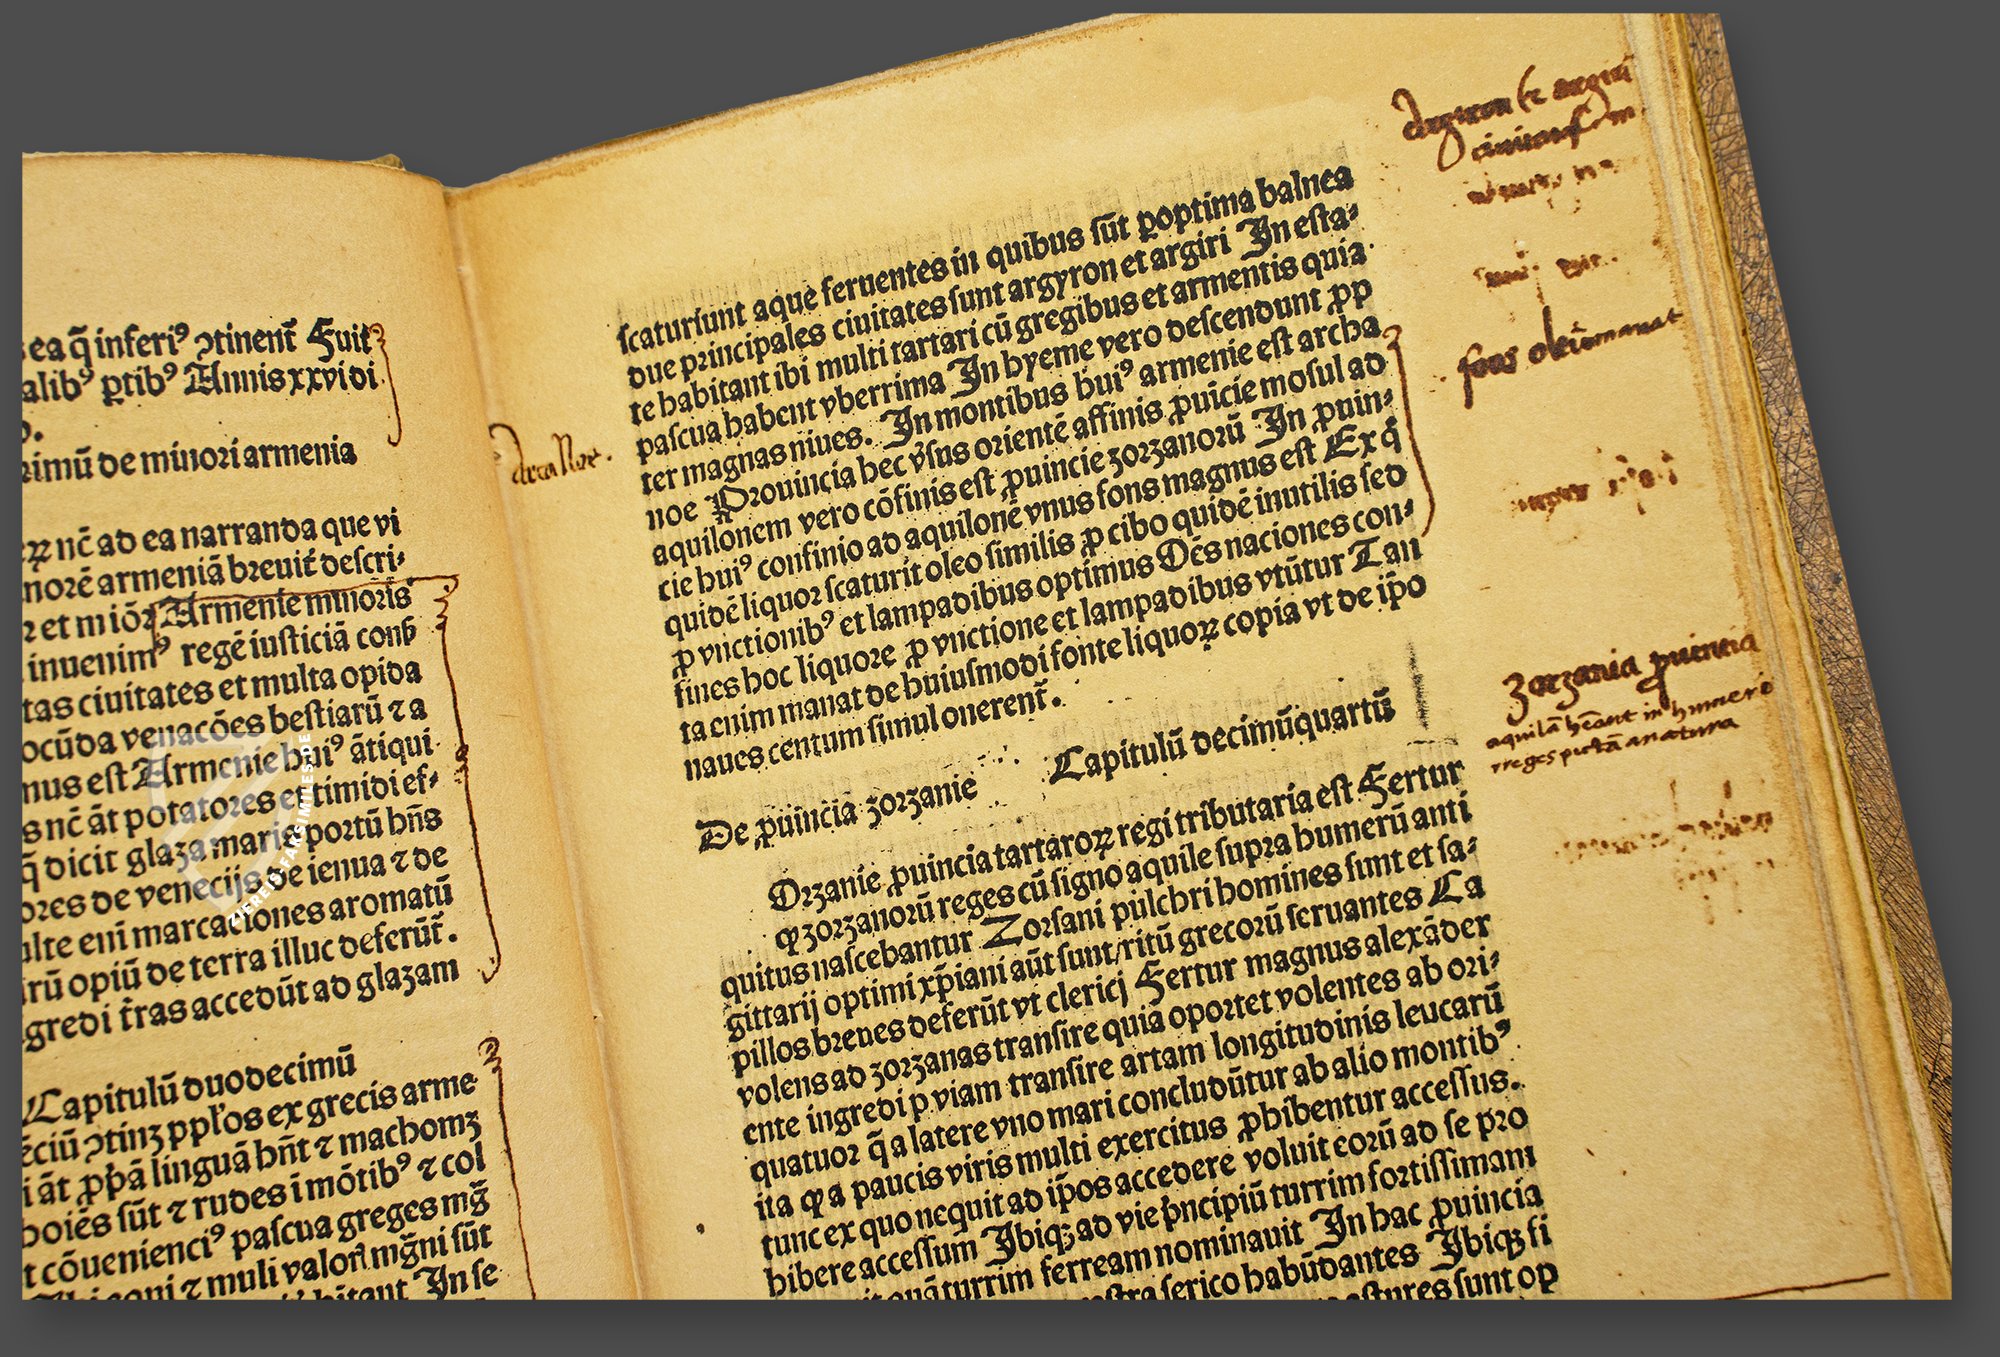 ea q̄ inferiꝰ ↄtinent̄ Fuit
alibꝰ ꝑtibꝰ Annis xxvi di
rimū de minori armenia
nc̄ ad ea narranda que vi
norē armeniā breuit̄ descri⸗
et mīoꝝ Armenie minoris
inuenimꝰ regē iusticiā conß
tas ciuitates et multa opida
ocūda venacōes bestiarū ⁊ a
mus est Armenie huiꝰ ātiqui
s nc̄ āt potatores et timidi ef⸗
q̄ dicit glaza maris portū bn̄s
ores de venecijs de ienua ⁊ de
ulte enī marcaciones aromatū
rū opiū de terra illuc deferūt̄.
gredi t̄ras accedūt ad glazam
Capitulū duodecimū
ēciū ↄtinꝫ ppl'os ex grecis arme
i āt ꝓpā linguā hn̄t ⁊ machomꝫ
boiēs sūt ⁊ rudes ī mōtibꝰ ⁊ col
t cōuenienciꝰ pascua greges mḡ
muli valoꝝ mḡni sūt
hitant In se
arca Noe.
scaturiunt aque feruentes in quibus sūt ꝑoptima balnea
due principales ciuitates sunt argyron et argiri In esta⸗
te habitant ibi multi tartari cū gregibus et armentis quia
pascua habent vberrima In hyeme vero descendunt ꝓp
ter magnas niues. In montibus huiꝰ armenie est archa
noe Prouincia hec v̓sus orientē affinis ꝓuicie mosul ad
aquilonem vero cōfinis est ꝓuincie zorzanorū In ꝓuin⸗
cie huiꝰ confinio ad aquilonē vnus fons magnus est Ex q̊
quidē liquor scaturit oleo similis ꝓ cibo quidē inutilis sed
ꝓ vnctionibꝰ et lampadibus optimus Oēs naciones con⸗
fines hoc liquore ꝓ vnctione et lampadibus vtūtur Tan
ta enim manat de huiusmodi fonte liquoꝝ copia vt de ip̄o
naues centum simul onerent̄.
Capitulū decimūquartū
De ꝓuincia zorzanie
Orzanie ꝓuincia tartaroꝝ regi tributaria est Fertur
ꝙ zorzanorū reges cū signo aquile supra humerū anti
quitus nascebantur Zorsani pulchri homines sunt et sa⸗
gittarij optimi xp̄iani aūt sunt/ritū grecorū seruantes Ca
pillos breues deferūt vt clericj Fertur magnus alexāder
volens ad zorzanas transire quia oportet volentes ab ori⸗
ente ingredi ꝑ viam transire artam longitudinis leucarū
quatuor q̄ a latere vno mari concludūtur ab alio montibꝰ
ita ꝙ a paucis viris multi exercitus ꝓhibentur accessus.
tunc ex quo nequit ad ip̄os accedere voluit eorū ad se pro
hibere accessum Ibiqꝫ ad vie p̄ncipiū turrim fortissimam
quā turrim ferream nominauit In hac ꝓuincia
serico habūdantes Ibiqꝫ fi
sunt op
argiron et argiri
ciuitates
fons olei manat
Zorzania ꝓuincia
aquilā hēant in humero
reges pictā a natura